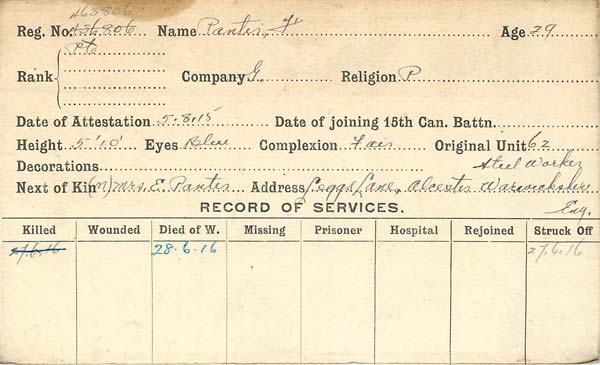 463806
Reg. No. 436806 Name Panter, F Age 29
Pte
Rank Company G. Religion P
Date of Attestation 5.8.15 Date of joining 15th Can. Battn.
Height 5'10" Eyes Blue Complexion Fair Original Unit 62
Decorations Steel Worker
Next of Kin (M) Mrs. E. Panter Address Leggs Lane, Alcester Warwickshire
Eng.
RECORD OF SERVICES.
Killed Wounded Died of W. Missing Prisoner Hospital Rejoined Struck Off
27.6.16 28.6.16 27.6.16